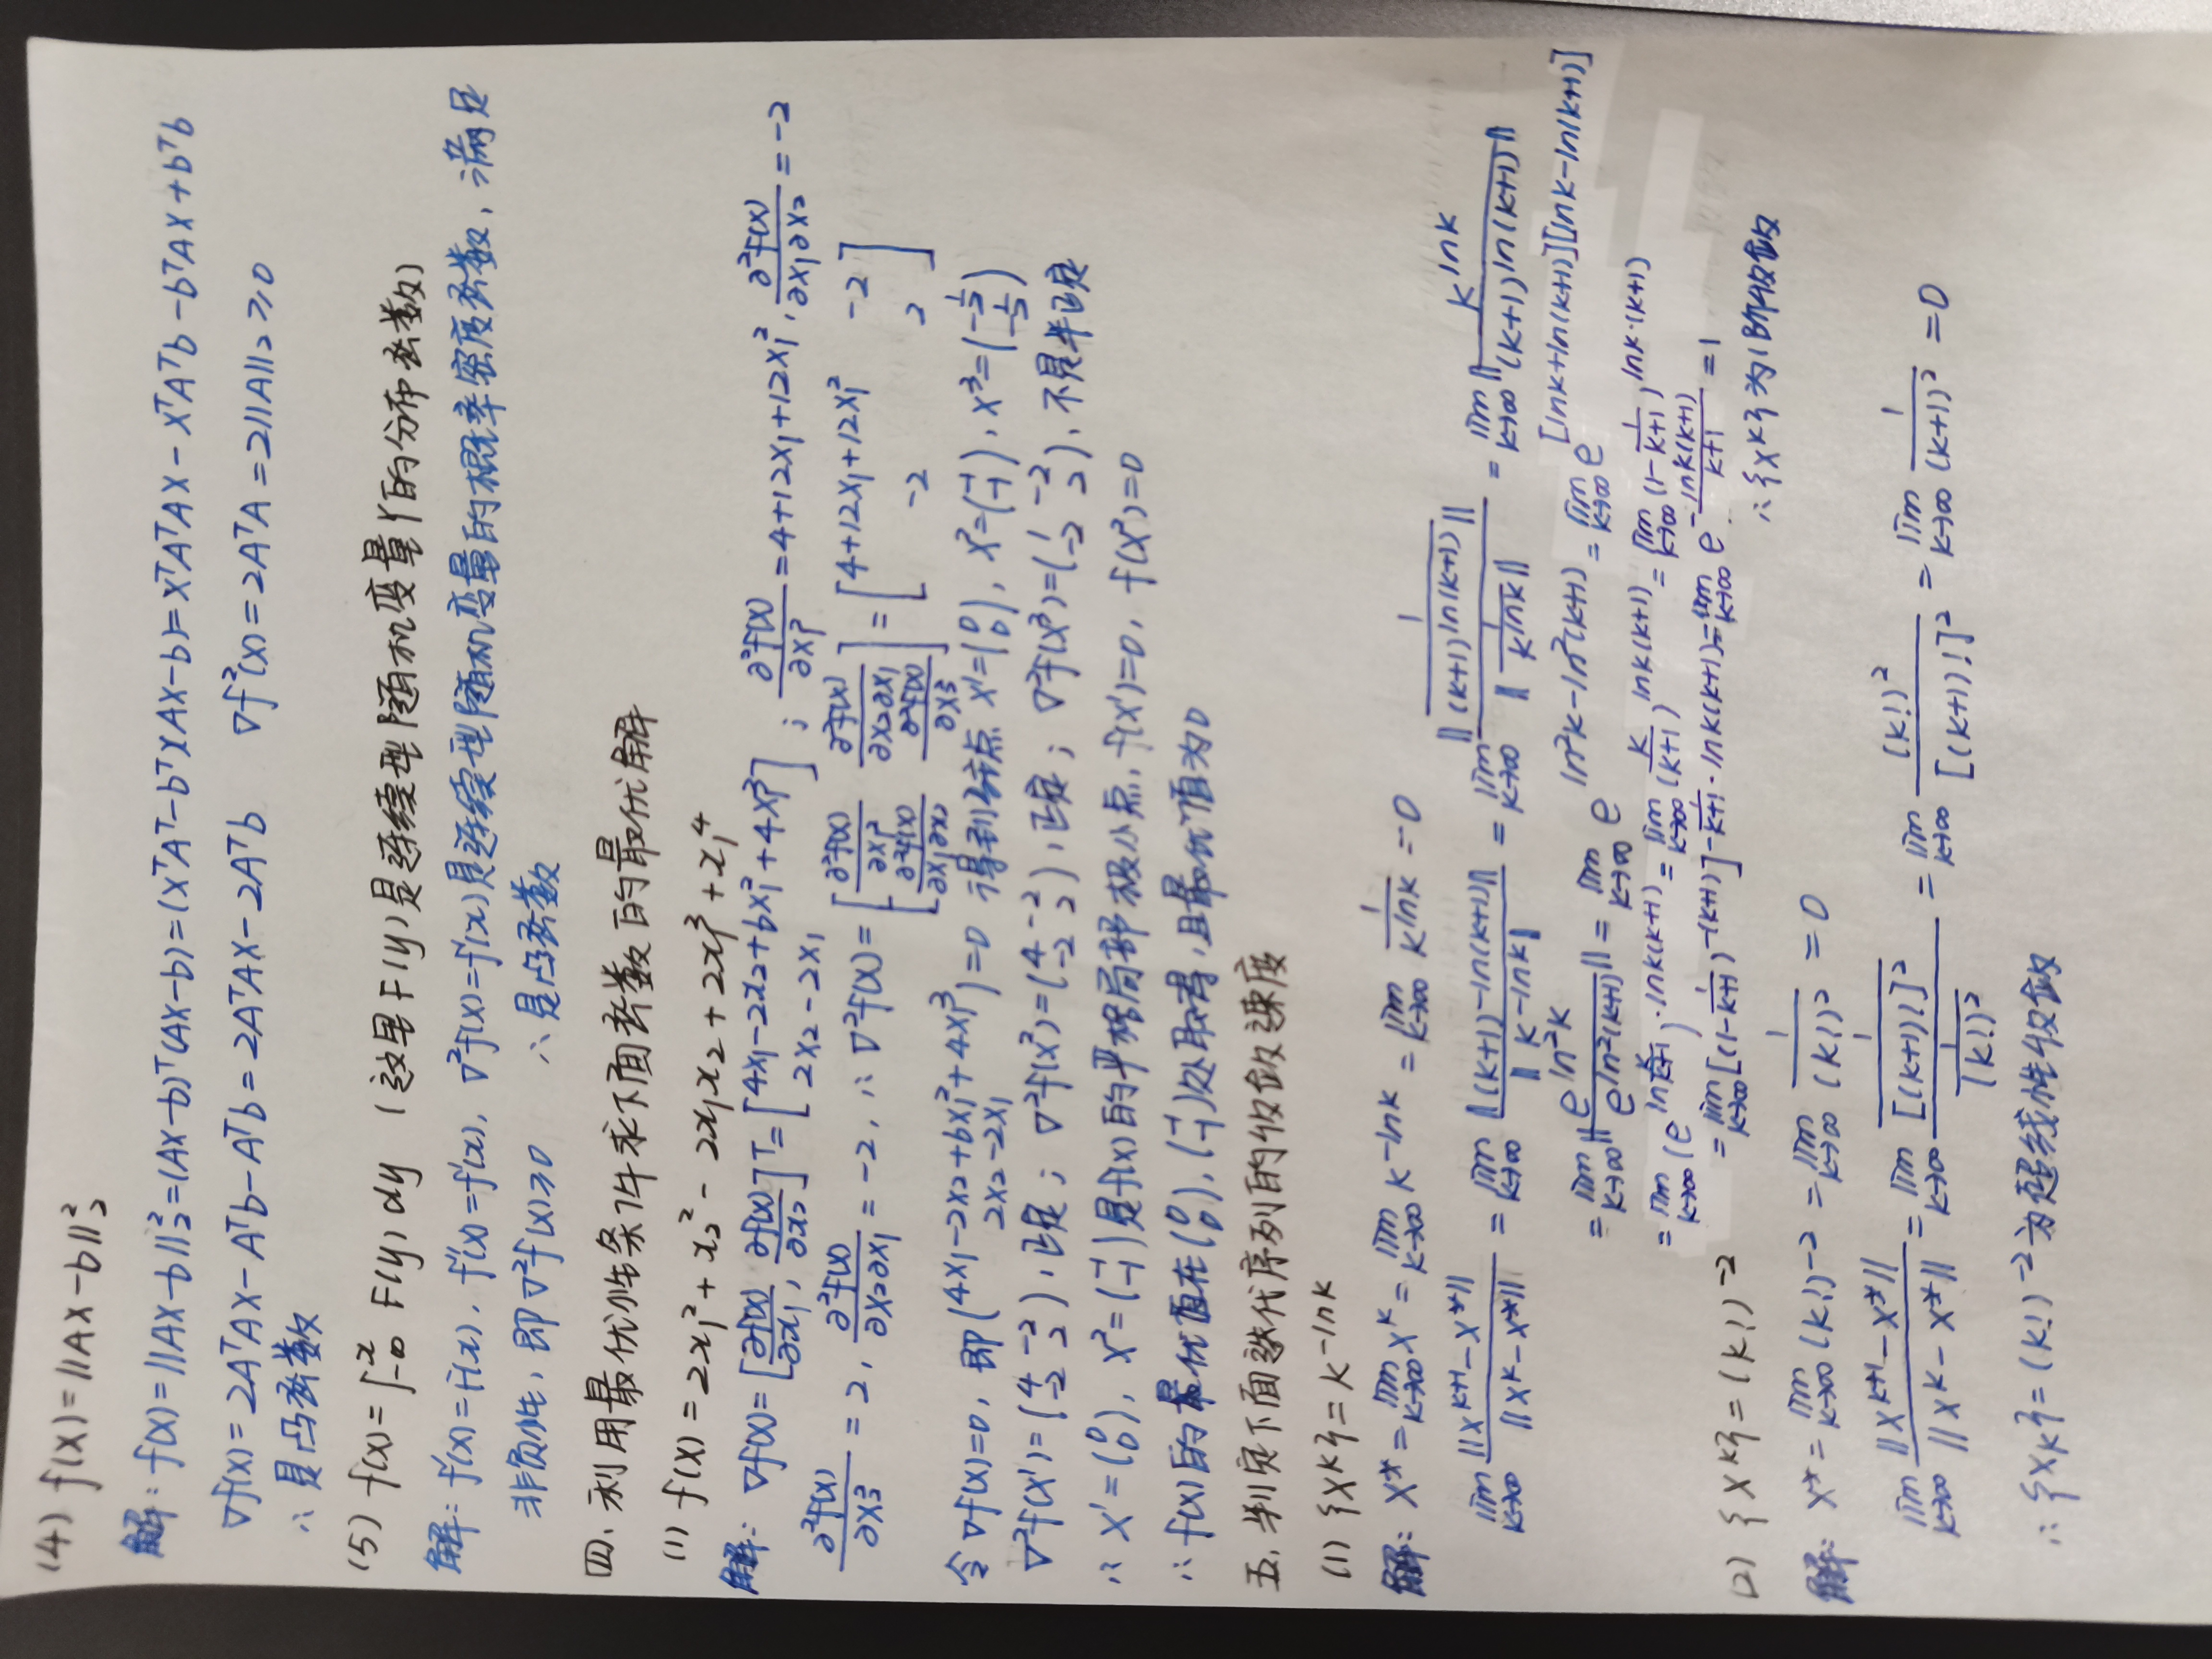 (4) f(x)=||AX-b||₂²
解: f(x)=||AX-b||₂²=(AX-b)ᵀ(AX-b)=(XᵀAᵀ-bᵀ)(AX-b)=XᵀAᵀAX-XᵀAᵀb-bᵀAX+bᵀb
∇f(x)=2AᵀAX-Aᵀb-Aᵀb=2AᵀAX-2Aᵀb ∇f²(x)=2AᵀA=2||A||₂≥0
∴是凸函数
(5) f(x)=∫_{-∞}^{x} F(y)dy (这里F(y)是连续型随机变量Y的分布函数)
解: f'(x)=F(x), f''(x)=f'(x), ∇²f(x)=f'(x)是连续型随机变量的概率密度函数, 满足
非负性, 即∇²f(x)≥0 ∴是凸函数
四、利用最优性条件求下面函数的最优解
(1) f(x)=2x₁²+x₂²-2x₁x₂+2x₁³+x₁⁴
解: ∇f(x)=[∂f(x)/∂x₁, ∂f(x)/∂x₂]ᵀ=[4x₁-2x₂+6x₁²+4x₁³; 2x₂-2x₁]; ∂²f(x)/∂x₁²=4+12x₁+12x₁², ∂²f(x)/∂x₁∂x₂=-2
∂²f(x)/∂x₂²=2, ∂²f(x)/∂x₂∂x₁=-2, ∴∇²f(x)=[∂²f(x)/∂x₁² ∂²f(x)/∂x₂∂x₁; ∂²f(x)/∂x₁∂x₂ ∂²f(x)/∂x₂²]=[4+12x₁+12x₁² -2; -2 2]
令∇f(x)=0, 即(4x₁-2x₂+6x₁²+4x₁³; 2x₂-2x₁)=0 得到驻点 X¹=(0; 0), X²=(-1; -1), X³=(-1/2; -1/2)
∇²f(X¹)=(4 -2; -2 2), 正定; ∇²f(X²)=(4 -2; -2 2), 正定; ∇²f(X³)=(1 -2; -2 2), 不是半正定
∴X¹=(0; 0), X²=(-1; -1)是f(x)的严格局部极小点, f(X¹)=0, f(X²)=0
∴f(x)的最优值在(0; 0), (-1; -1)处取得, 且最优值为0
五、判定下面迭代序列的收敛速度
(1) {X^k}=k^{-lnk}
解: X*=lim_{k→∞} X^k=lim_{k→∞} k^{-lnk}=lim_{k→∞} 1/k^{lnk}=0
lim_{k→∞} ||X^{k+1}-X*||/||X^k-X*||=lim_{k→∞} ||(k+1)^{-ln(k+1)}||/||k^{-lnk}||=lim_{k→∞} ||1/(k+1)^{ln(k+1)}||/||1/k^{lnk}||=lim_{k→∞} ||k^{lnk}/(k+1)^{ln(k+1)}||
=lim_{k→∞} ||e^{ln²k}/e^{ln²(k+1)}||=lim_{k→∞} e^{ln²k-ln²(k+1)}=lim_{k→∞} e^{[lnk+ln(k+1)][lnk-ln(k+1)]}
=lim_{k→∞} (e^{ln k/(k+1)})^{·lnk(k+1)}=lim_{k→∞} (k/(k+1))^{lnk(k+1)}=lim_{k→∞} (1-1/(k+1))^{lnk·(k+1)}
=lim_{k→∞} [(1-1/(k+1))^{-(k+1)}]^{-1/(k+1)·lnk(k+1)}=lim_{k→∞} e^{-lnk(k+1)/(k+1)}=1
∴{X^k}为1阶收敛
(2) {X^k}=(k!)^{-2}
解: X*=lim_{k→∞} (k!)^{-2}=lim_{k→∞} 1/(k!)²=0
lim_{k→∞} ||X^{k+1}-X*||/||X^k-X*||=lim_{k→∞} (1/[(k+1)!]²)/(1/(k!)²)=lim_{k→∞} (k!)²/[(k+1)!]²=lim_{k→∞} 1/(k+1)²=0
∴{X_k}=(k!)^{-2}为超线性收敛